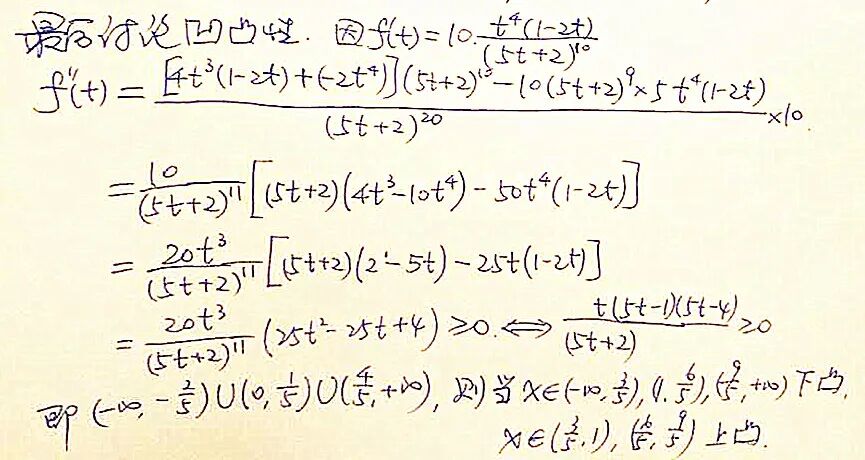 最后讨论凹凸性. 因f'(t)=10·\frac{t^4(1-2t)}{(5t+2)^{10}}
f''(t)=\frac{[4t^3(1-2t)+(-2t^4)](5t+2)^{10}-10(5t+2)^9×5t^4(1-2t)}{(5t+2)^{20}}×10.
=\frac{10}{(5t+2)^{11}}[(5t+2)(4t^3-10t^4)-50t^4(1-2t)]
=\frac{20t^3}{(5t+2)^{11}}[(5t+2)(2-5t)-25t(1-2t)]
=\frac{20t^3}{(5t+2)^{11}}(25t^2-25t+4)≥0.⟺\frac{t(5t-1)(5t-4)}{(5t+2)}≥0
即(-∞,-\frac{2}{5})∪(0,\frac{1}{5})∪(\frac{4}{5},+∞),则当x∈(-∞,\frac{3}{5}),(1,\frac{6}{5}),(\frac{9}{5},+∞)下凸,
x∈(\frac{3}{5},1),(\frac{6}{5},\frac{9}{5})上凸.